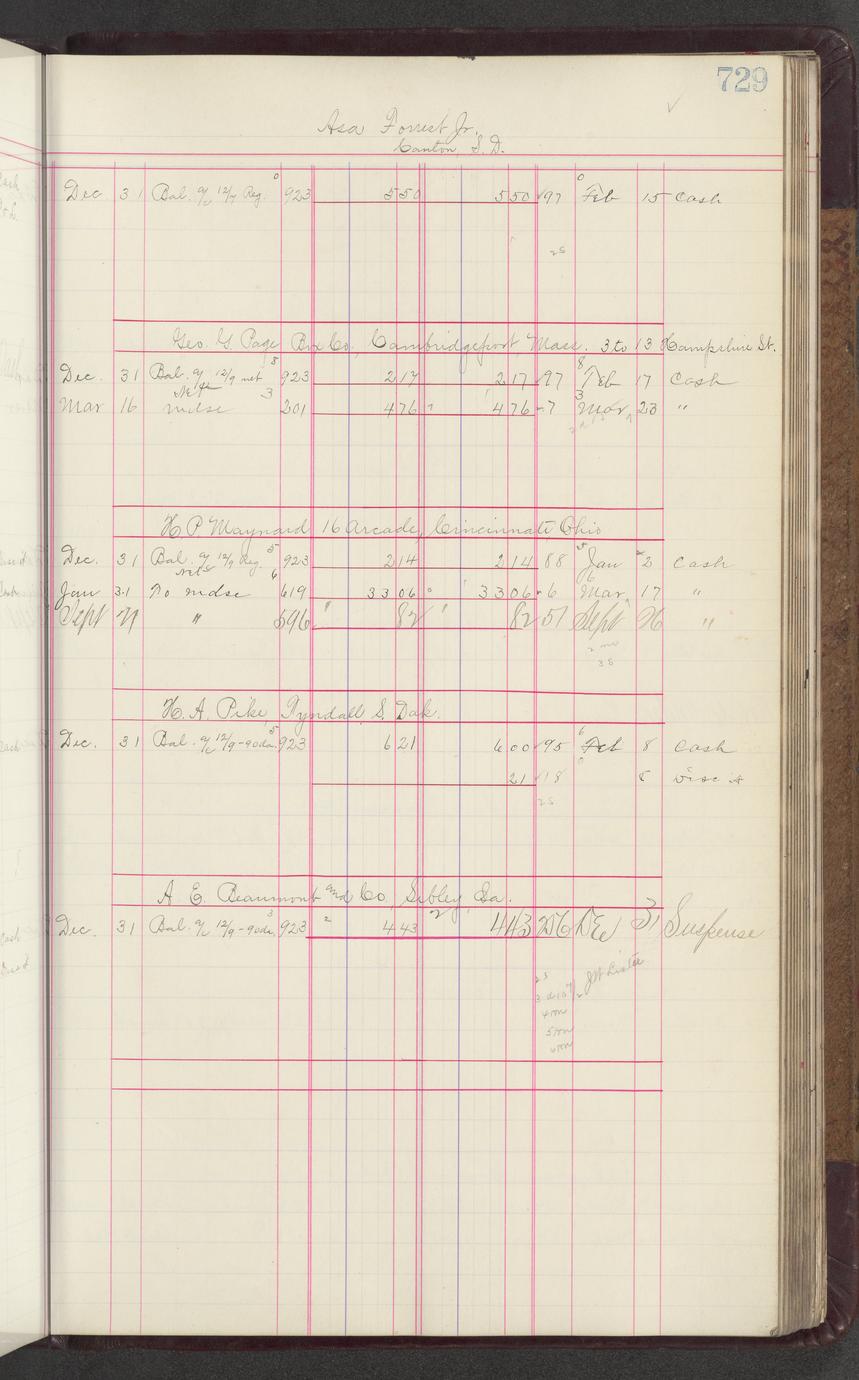 729
Asa Forrest Jr.
Canton, S. D.
Dec 31 Bal. a/c 12/7 Reg. 923 550 550 97 Feb 15 Cash
25
Geo. G. Page Box Co, Cambridgeport Mass. 3 to 13 Hampshire St.
Dec. 31 Bal. a/c 12/9 net 923 217 217 97 Feb 17 Cash
Mar 16 mdse 201 476 476 7 Mar 23 "
H. P. Maynard 16 Arcade, Cincinnati Ohio
Dec. 31 Bal. a/c 12/9 Reg. 923 214 214 88 Jan 2 Cash
Net
Jan 31 To mdse 619 3306 3306 6 Mar 17 "
Sept 21 " 596 82 82 51 Sept 26 "
H. A. Pike, Tyndall S. Dak.
Dec. 31 Bal. a/c 12/9-90da. 923 621 600 95 Feb 8 Cash
21 18 8 Disc't
25
A. E. Beaumont and Co, Sibley, Ga.
Dec. 31 Bal. a/c 12/9-90da. 923 443 443 Dec 31 Suspense
25